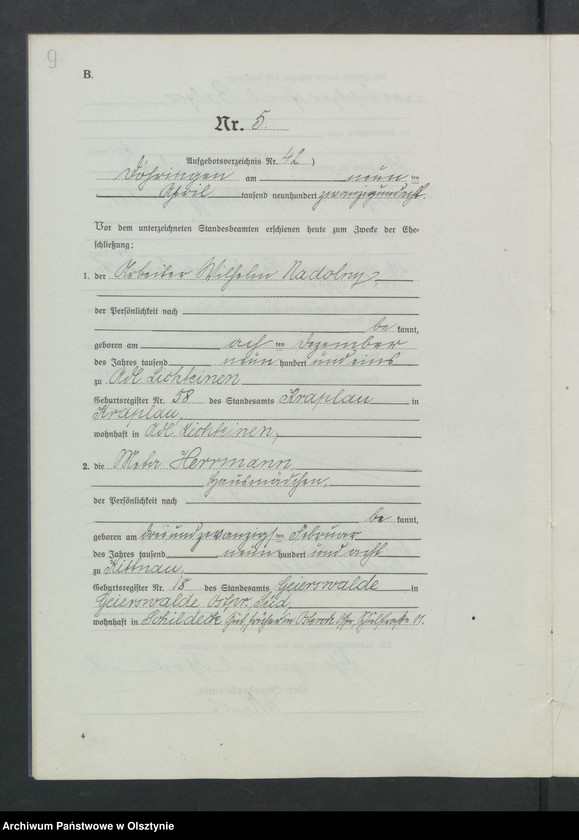 9
B.
Nr. 5.
Aufgebotsverzeichnis Nr. 42 )
Döhringen am neun ten
April tausend neunhundert zwanzigundacht.
Vor dem unterzeichneten Standesbeamten erschienen heute zum Zwecke der Ehe-
schließung:
1. der Arbeiter Wilhelm Nadolny,
der Persönlichkeit nach
be kannt,
geboren am ach ten Dezember
des Jahres tausend neun hundert und eins
zu Adl. Lichteinen
Geburtsregister Nr. 58 des Standesamts Kraplau in
Kraplau,
wohnhaft in Adl. Lichteinen,
2. die Meta Herrmann
Hausmädchen,
der Persönlichkeit nach
be kannt,
geboren am dreiundzwanzigs ten Februar
des Jahres tausend neun hundert und acht
zu Kittnau,
Geburtsregister Nr. 18 des Standesamts Geierswalde in
Geierswalde Ostpr. Süd,
wohnhaft in Schildeck Süd früher in Osterode Opr.
4
Archiwum Państwowe w Olsztynie